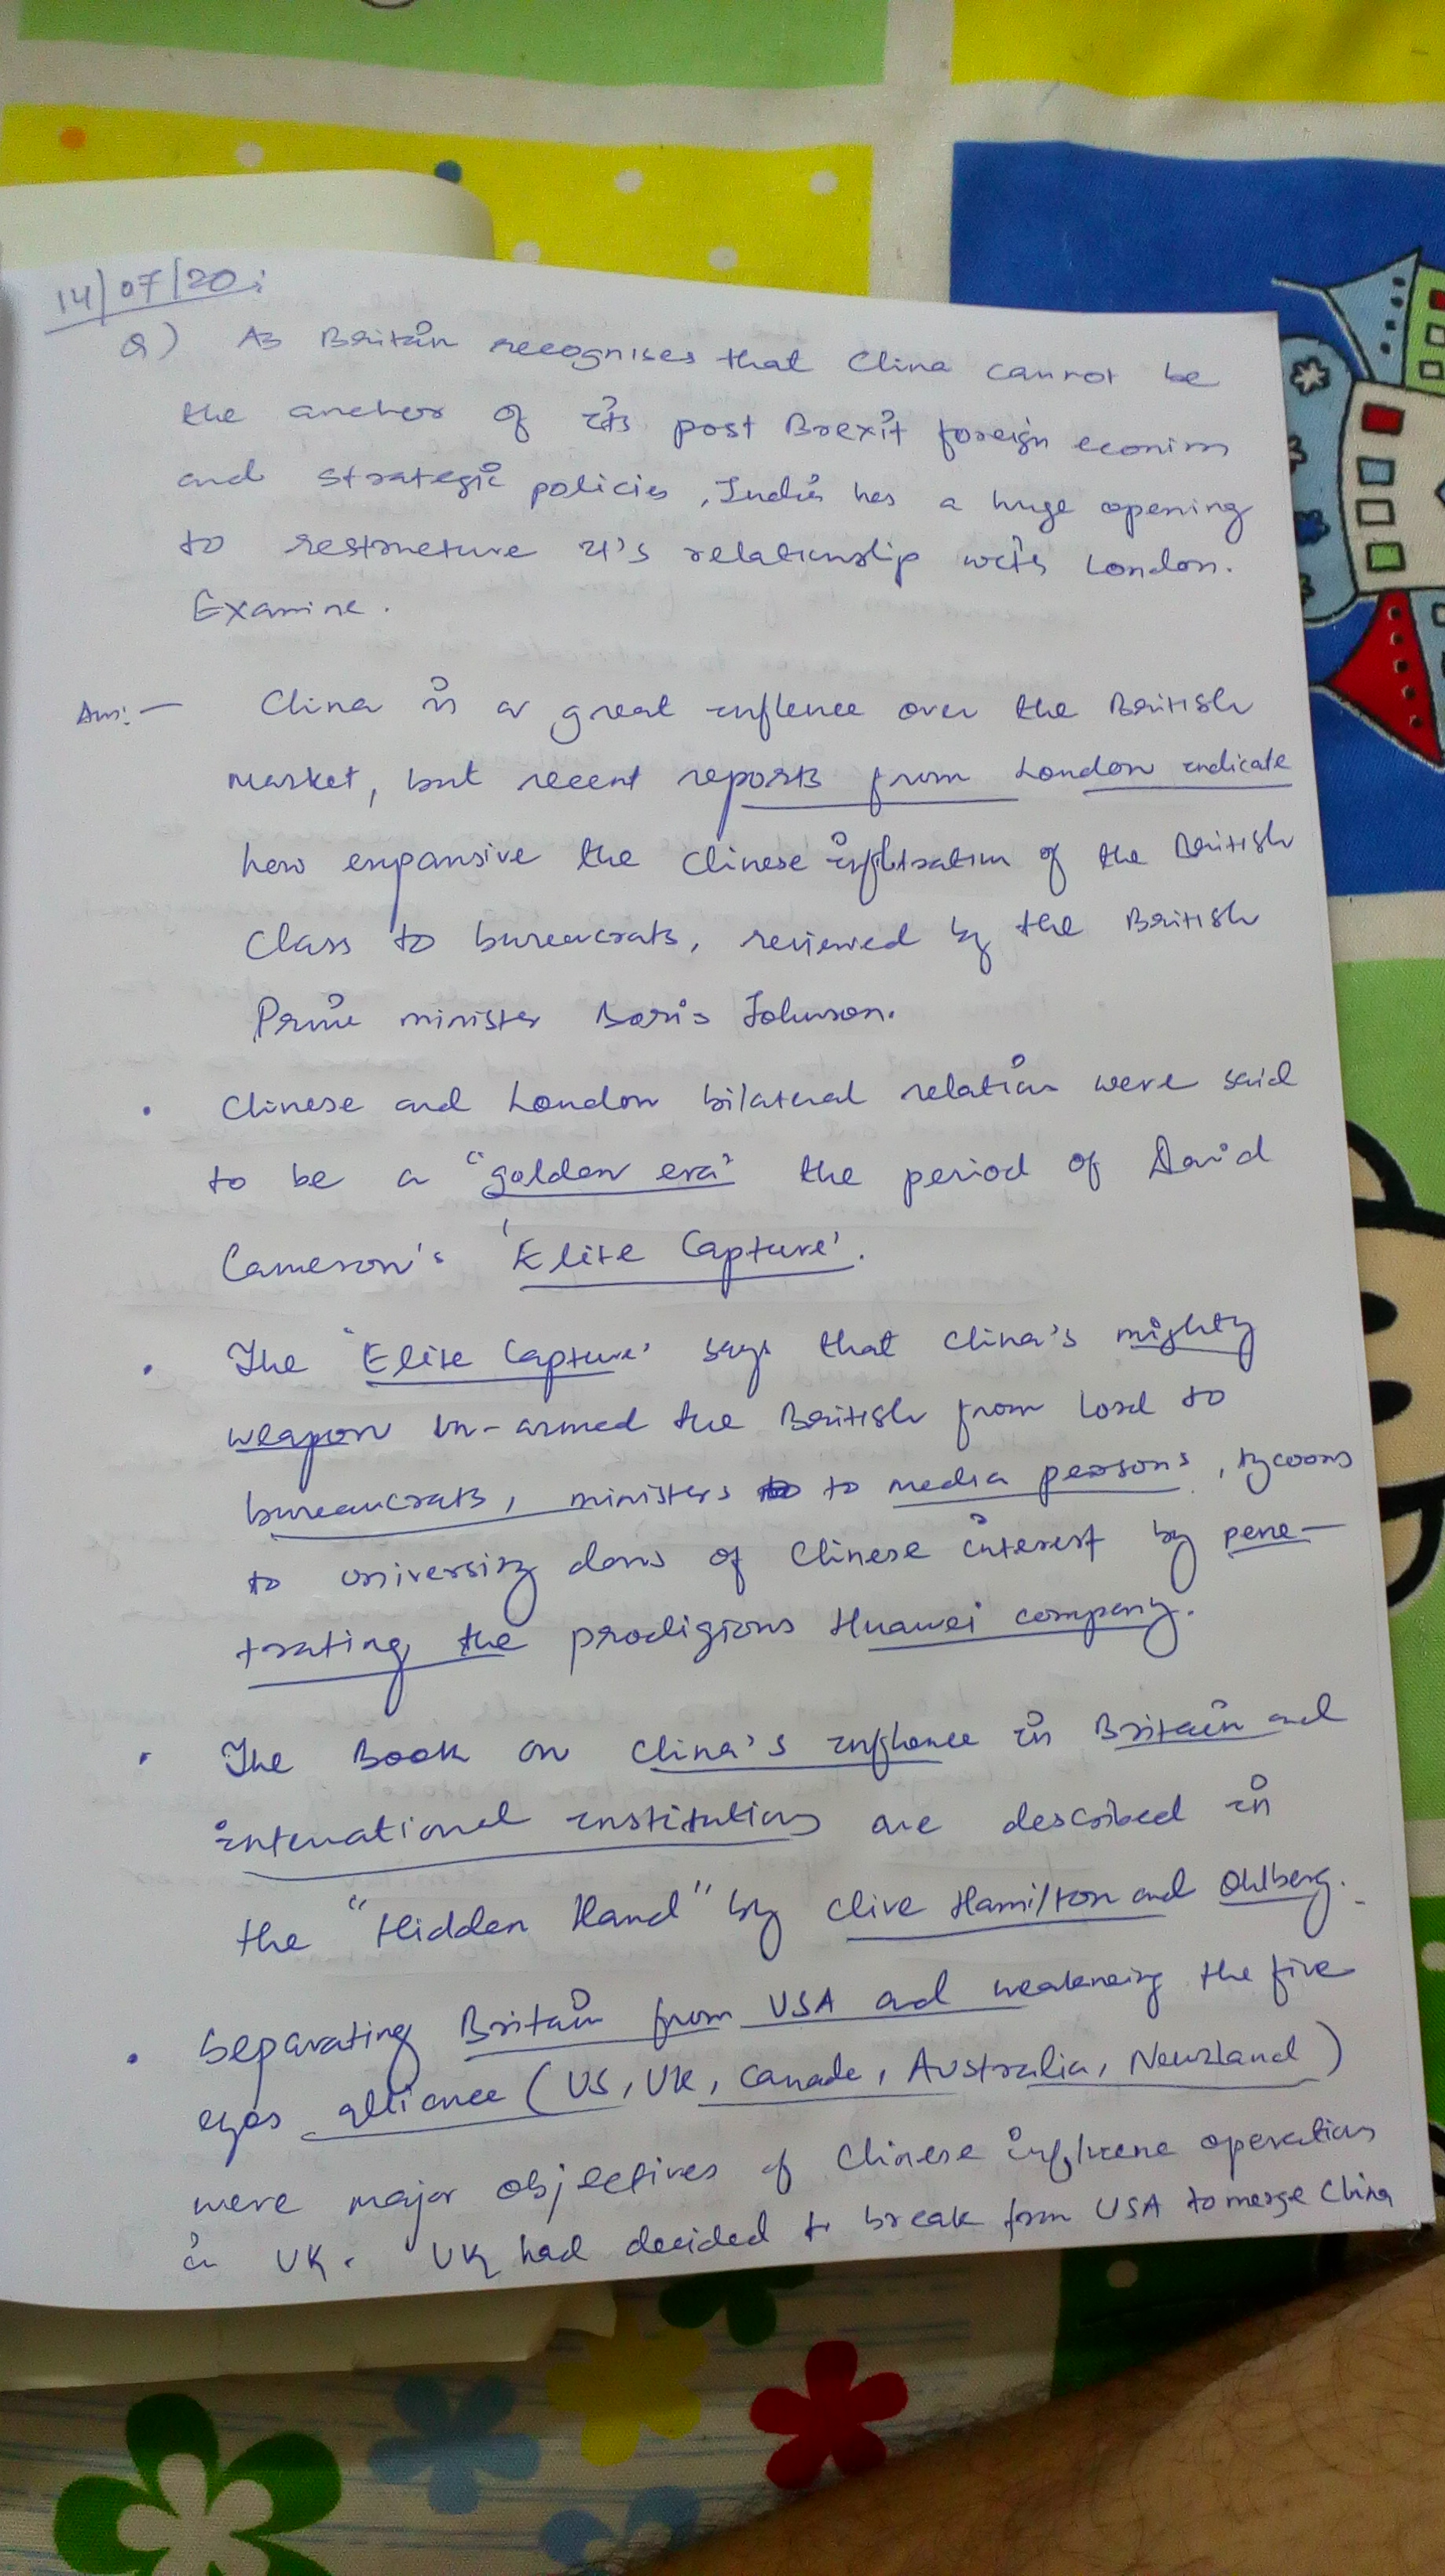 14/07/20:
Q) As Britain recognises that China cannot be
the anchor of its post Brexit foreign econim
and strategic policies, India has a huge opening
to restructure it's relationship with London.
Examine.
Ans:- China is a great influence over the British
market, but recent reports from London indicate
how expansive the Chinese infiltration of the British
Class to bureucrats, reviewed by the British
Prime minister Boris Johnson.
• Chinese and London bilateral relation were said
to be a "golden era" the period of David
Cameron's 'Elite Capture'.
• The 'Elite Capture' says that China's mighty
weapon un-armed the British from lord to
bureaucrats, ministers to media persons, tycoons
to university dons of Chinese interest by pene-
trating the prodigious Huawei company.
• The Book on China's influence in Britain and
international institutions are described in
the "Hidden Hand" by Clive Hamilton and Ohlberg.
• Separating Britain from USA and weakening the five
eyes alliance (US, UK, Canada, Australia, Newzland)
were major objectives of Chinese influence operations
in UK. UK had decided to break from USA to merge China